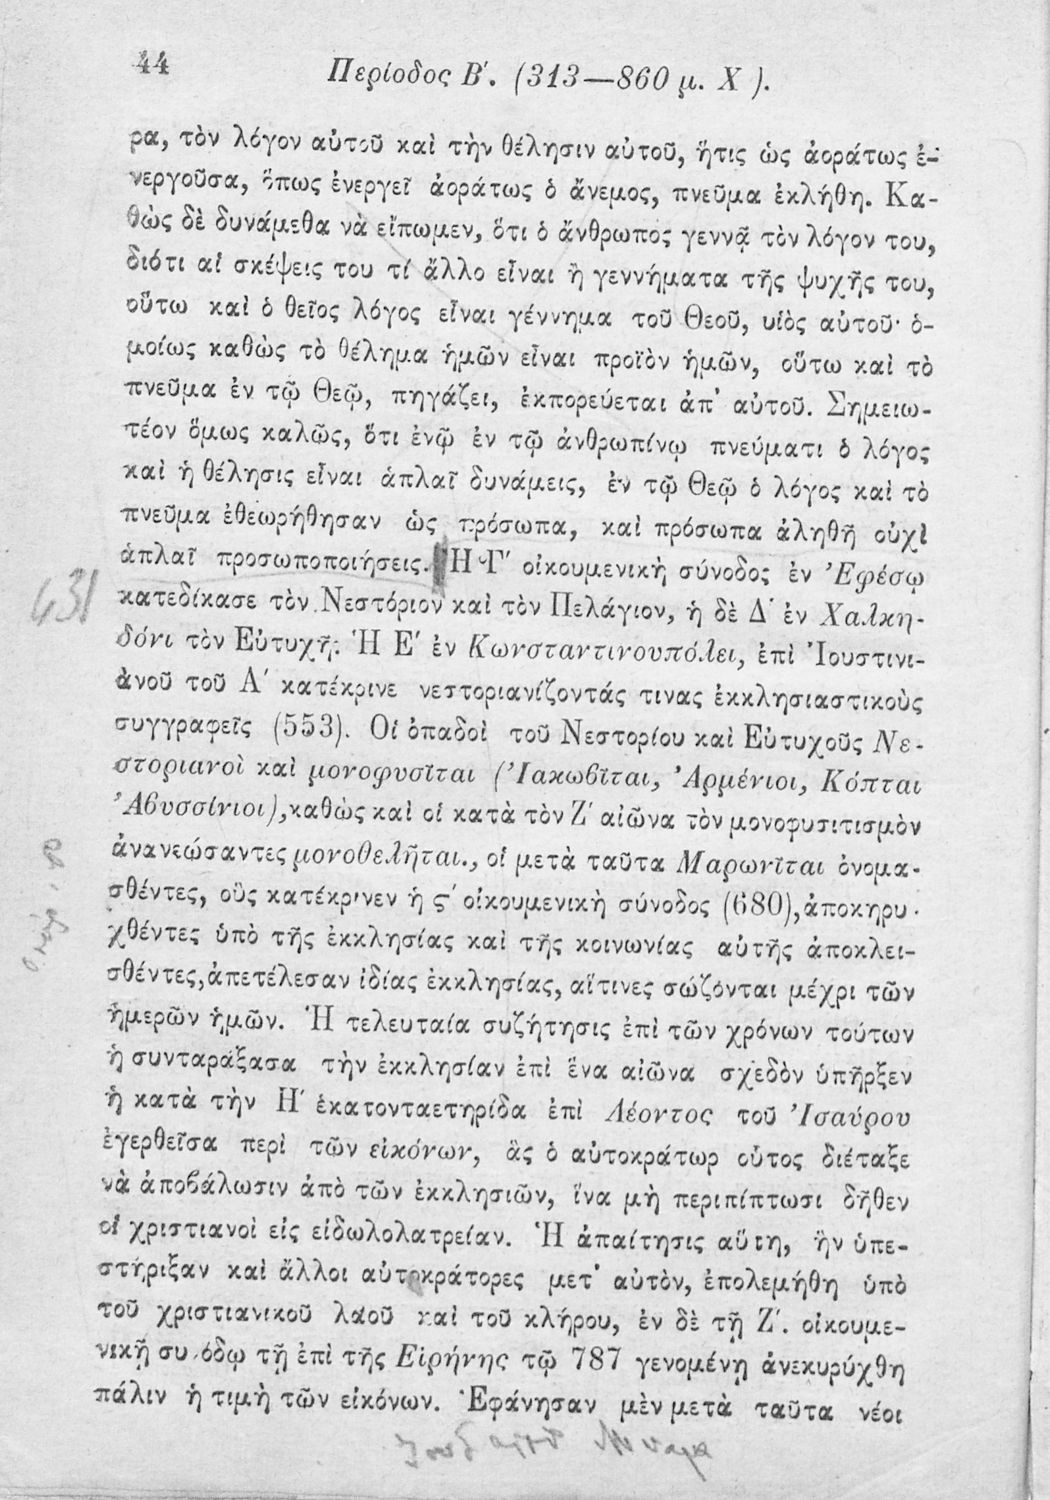 44
Περίοδος Β΄. (313—860 μ. Χ ).
ρα, τὸν λόγον αὐτοῦ καὶ τὴν θέλησιν αὐτοῦ, ἥτις ὡς ἀοράτως ἐ-
νεργοῦσα, ὅπως ἐνεργεῖ ἀοράτως ὁ ἄνεμος, πνεῦμα ἐκλήθη. Κα-
θὼς δὲ δυνάμεθα νὰ εἴπωμεν, ὅτι ὁ ἄνθρωπος γεννᾷ τὸν λόγον του,
διότι αἱ σκέψεις του τί ἄλλο εἶναι ἢ γεννήματα τῆς ψυχῆς του,
οὕτω καὶ ὁ θεῖος λόγος εἶναι γέννημα τοῦ Θεοῦ, υἱὸς αὐτοῦ· ὁ-
μοίως καθὼς τὸ θέλημα ἡμῶν εἶναι προϊὸν ἡμῶν, οὕτω καὶ τὸ
πνεῦμα ἐν τῷ Θεῷ, πηγάζει, ἐκπορεύεται ἀπ᾽ αὐτοῦ. Σημειω-
τέον ὅμως καλῶς, ὅτι ἐνῷ ἐν τῷ ἀνθρωπίνῳ πνεύματι ὁ λόγος
καὶ ἡ θέλησις εἶναι ἁπλαῖ δυνάμεις, ἐν τῷ Θεῷ ὁ λόγος καὶ τὸ
πνεῦμα ἐθεωρήθησαν ὡς πρόσωπα, καὶ πρόσωπα ἀληθῆ οὐχὶ
ἁπλαῖ προσωποποιήσεις. Ἡ Γ΄ οἰκουμενικὴ σύνοδος ἐν Ἐφέσῳ
431
κατεδίκασε τὸν Νεστόριον καὶ τὸν Πελάγιον, ἡ δὲ Δ΄ ἐν Χαλκη-
δόνι τὸν Εὐτυχῆ. Ἡ Ε΄ ἐν Κωνσταντινουπόλει, ἐπὶ Ἰουστινι-
ανοῦ τοῦ Α΄ κατέκρινε νεστοριανίζοντάς τινας ἐκκλησιαστικοὺς
συγγραφεῖς (553). Οἱ ὀπαδοὶ τοῦ Νεστορίου καὶ Εὐτυχοῦς Νε-
στοριανοὶ καὶ μονοφυσῖται (Ἰακωβῖται, Ἀρμένιοι, Κόπται
Ἀβυσσίνιοι), καθὼς καὶ οἱ κατὰ τὸν Ζ΄ αἰῶνα τὸν μονοφυσιτισμὸν
ἀνανεώσαντες μονοθελῆται., οἱ μετὰ ταῦτα Μαρωνῖται ὀνομα-
σθέντες, οὓς κατέκρινεν ἡ ς΄ οἰκουμενικὴ σύνοδος (680), ἀποκηρυ-
χθέντες ὑπὸ τῆς ἐκκλησίας καὶ τῆς κοινωνίας αὐτῆς ἀποκλει-
σθέντες, ἀπετέλεσαν ἰδίας ἐκκλησίας, αἵτινες σώζονται μέχρι τῶν
ἡμερῶν ἡμῶν. Ἡ τελευταία συζήτησις ἐπὶ τῶν χρόνων τούτων
ἡ συνταράξασα τὴν ἐκκλησίαν ἐπὶ ἕνα αἰῶνα σχεδὸν ὑπῆρξεν
ἡ κατὰ τὴν Η΄ ἑκατονταετηρίδα ἐπὶ Λέοντος τοῦ Ἰσαύρου
ἐγερθεῖσα περὶ τῶν εἰκόνων, ἃς ὁ αὐτοκράτωρ οὗτος διέταξε
νὰ ἀποβάλωσιν ἀπὸ τῶν ἐκκλησιῶν, ἵνα μὴ περιπίπτωσι δῆθεν
οἱ χριστιανοὶ εἰς εἰδωλολατρείαν. Ἡ ἀπαίτησις αὕτη, ἣν ὑπε-
στήριξαν καὶ ἄλλοι αὐτοκράτορες μετ᾽ αὐτὸν, ἐπολεμήθη ὑπὸ
τοῦ χριστιανικοῦ λαοῦ καὶ τοῦ κλήρου, ἐν δὲ τῇ Ζ΄. οἰκουμε-
νικῇ συνόδῳ τῇ ἐπὶ τῆς Εἰρήνης τῷ 787 γενομένῃ ἀνεκυρύχθη
πάλιν ἡ τιμὴ τῶν εἰκόνων. Ἐφάνησαν μὲν μετὰ ταῦτα νέοι